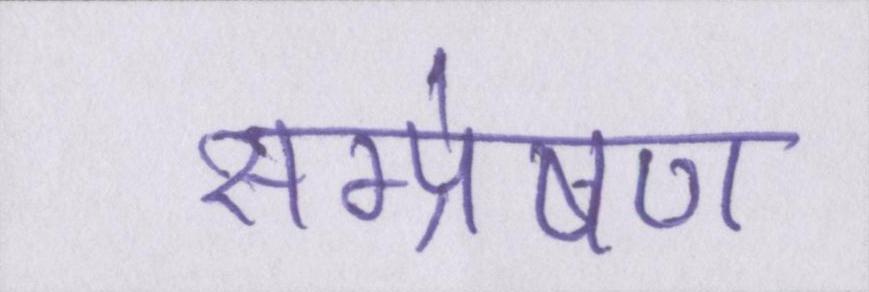 सम्प्रेषण